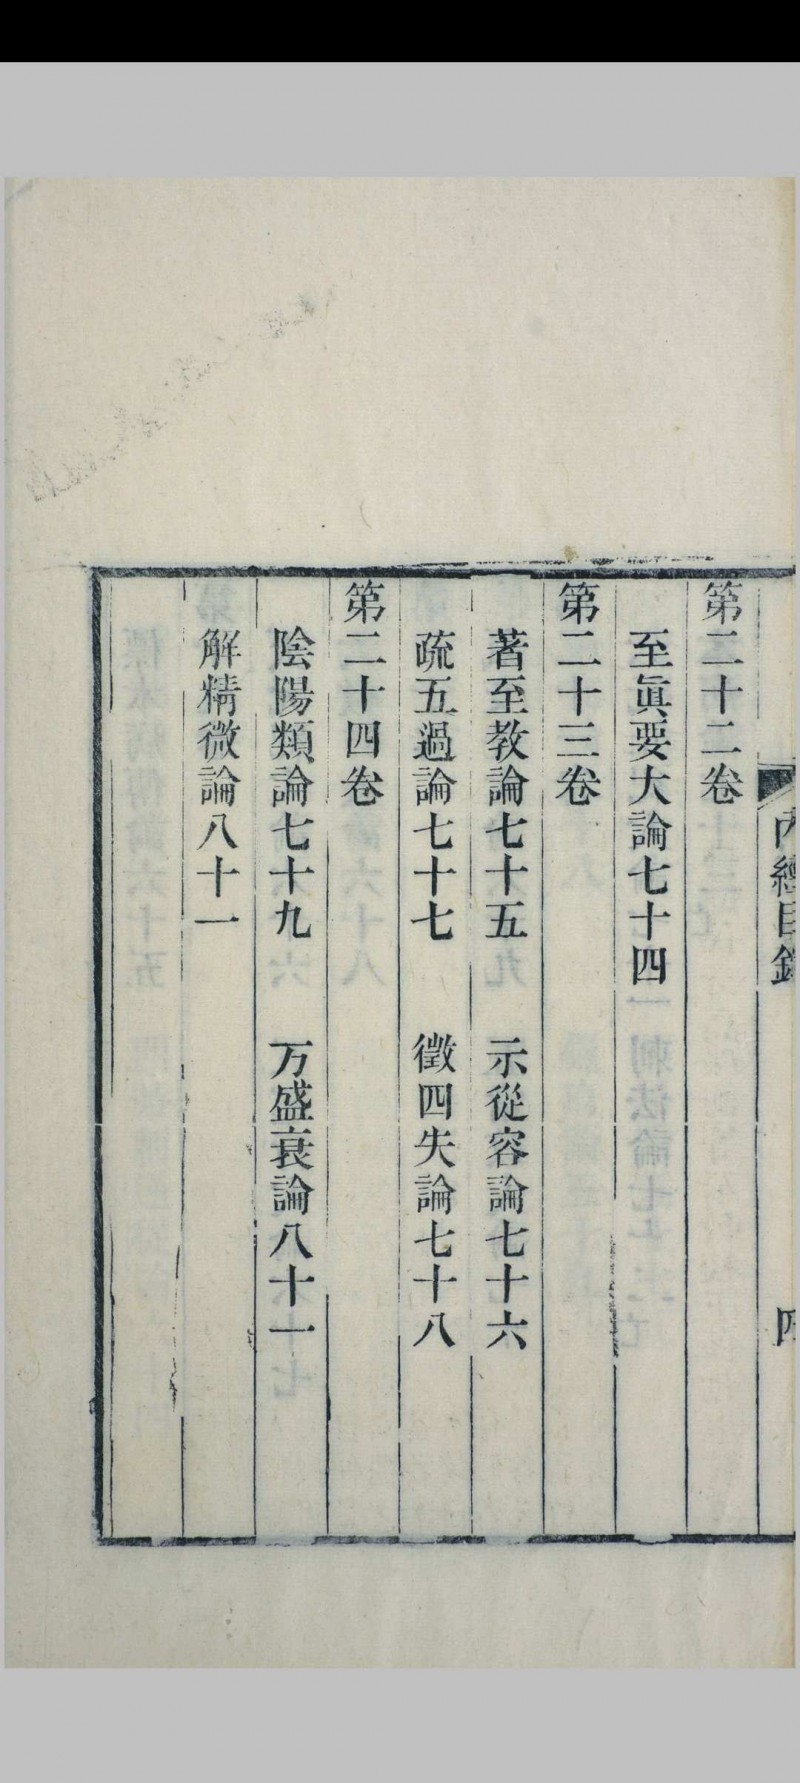 內經目錄
四
第二十二卷
至眞要大論七十四
第二十三卷
著至教論七十五　示從容論七十六
疏五過論七十七　徵四失論七十八
第二十四卷
陰陽類論七十九　万盛衰論八十一
解精微論八十一